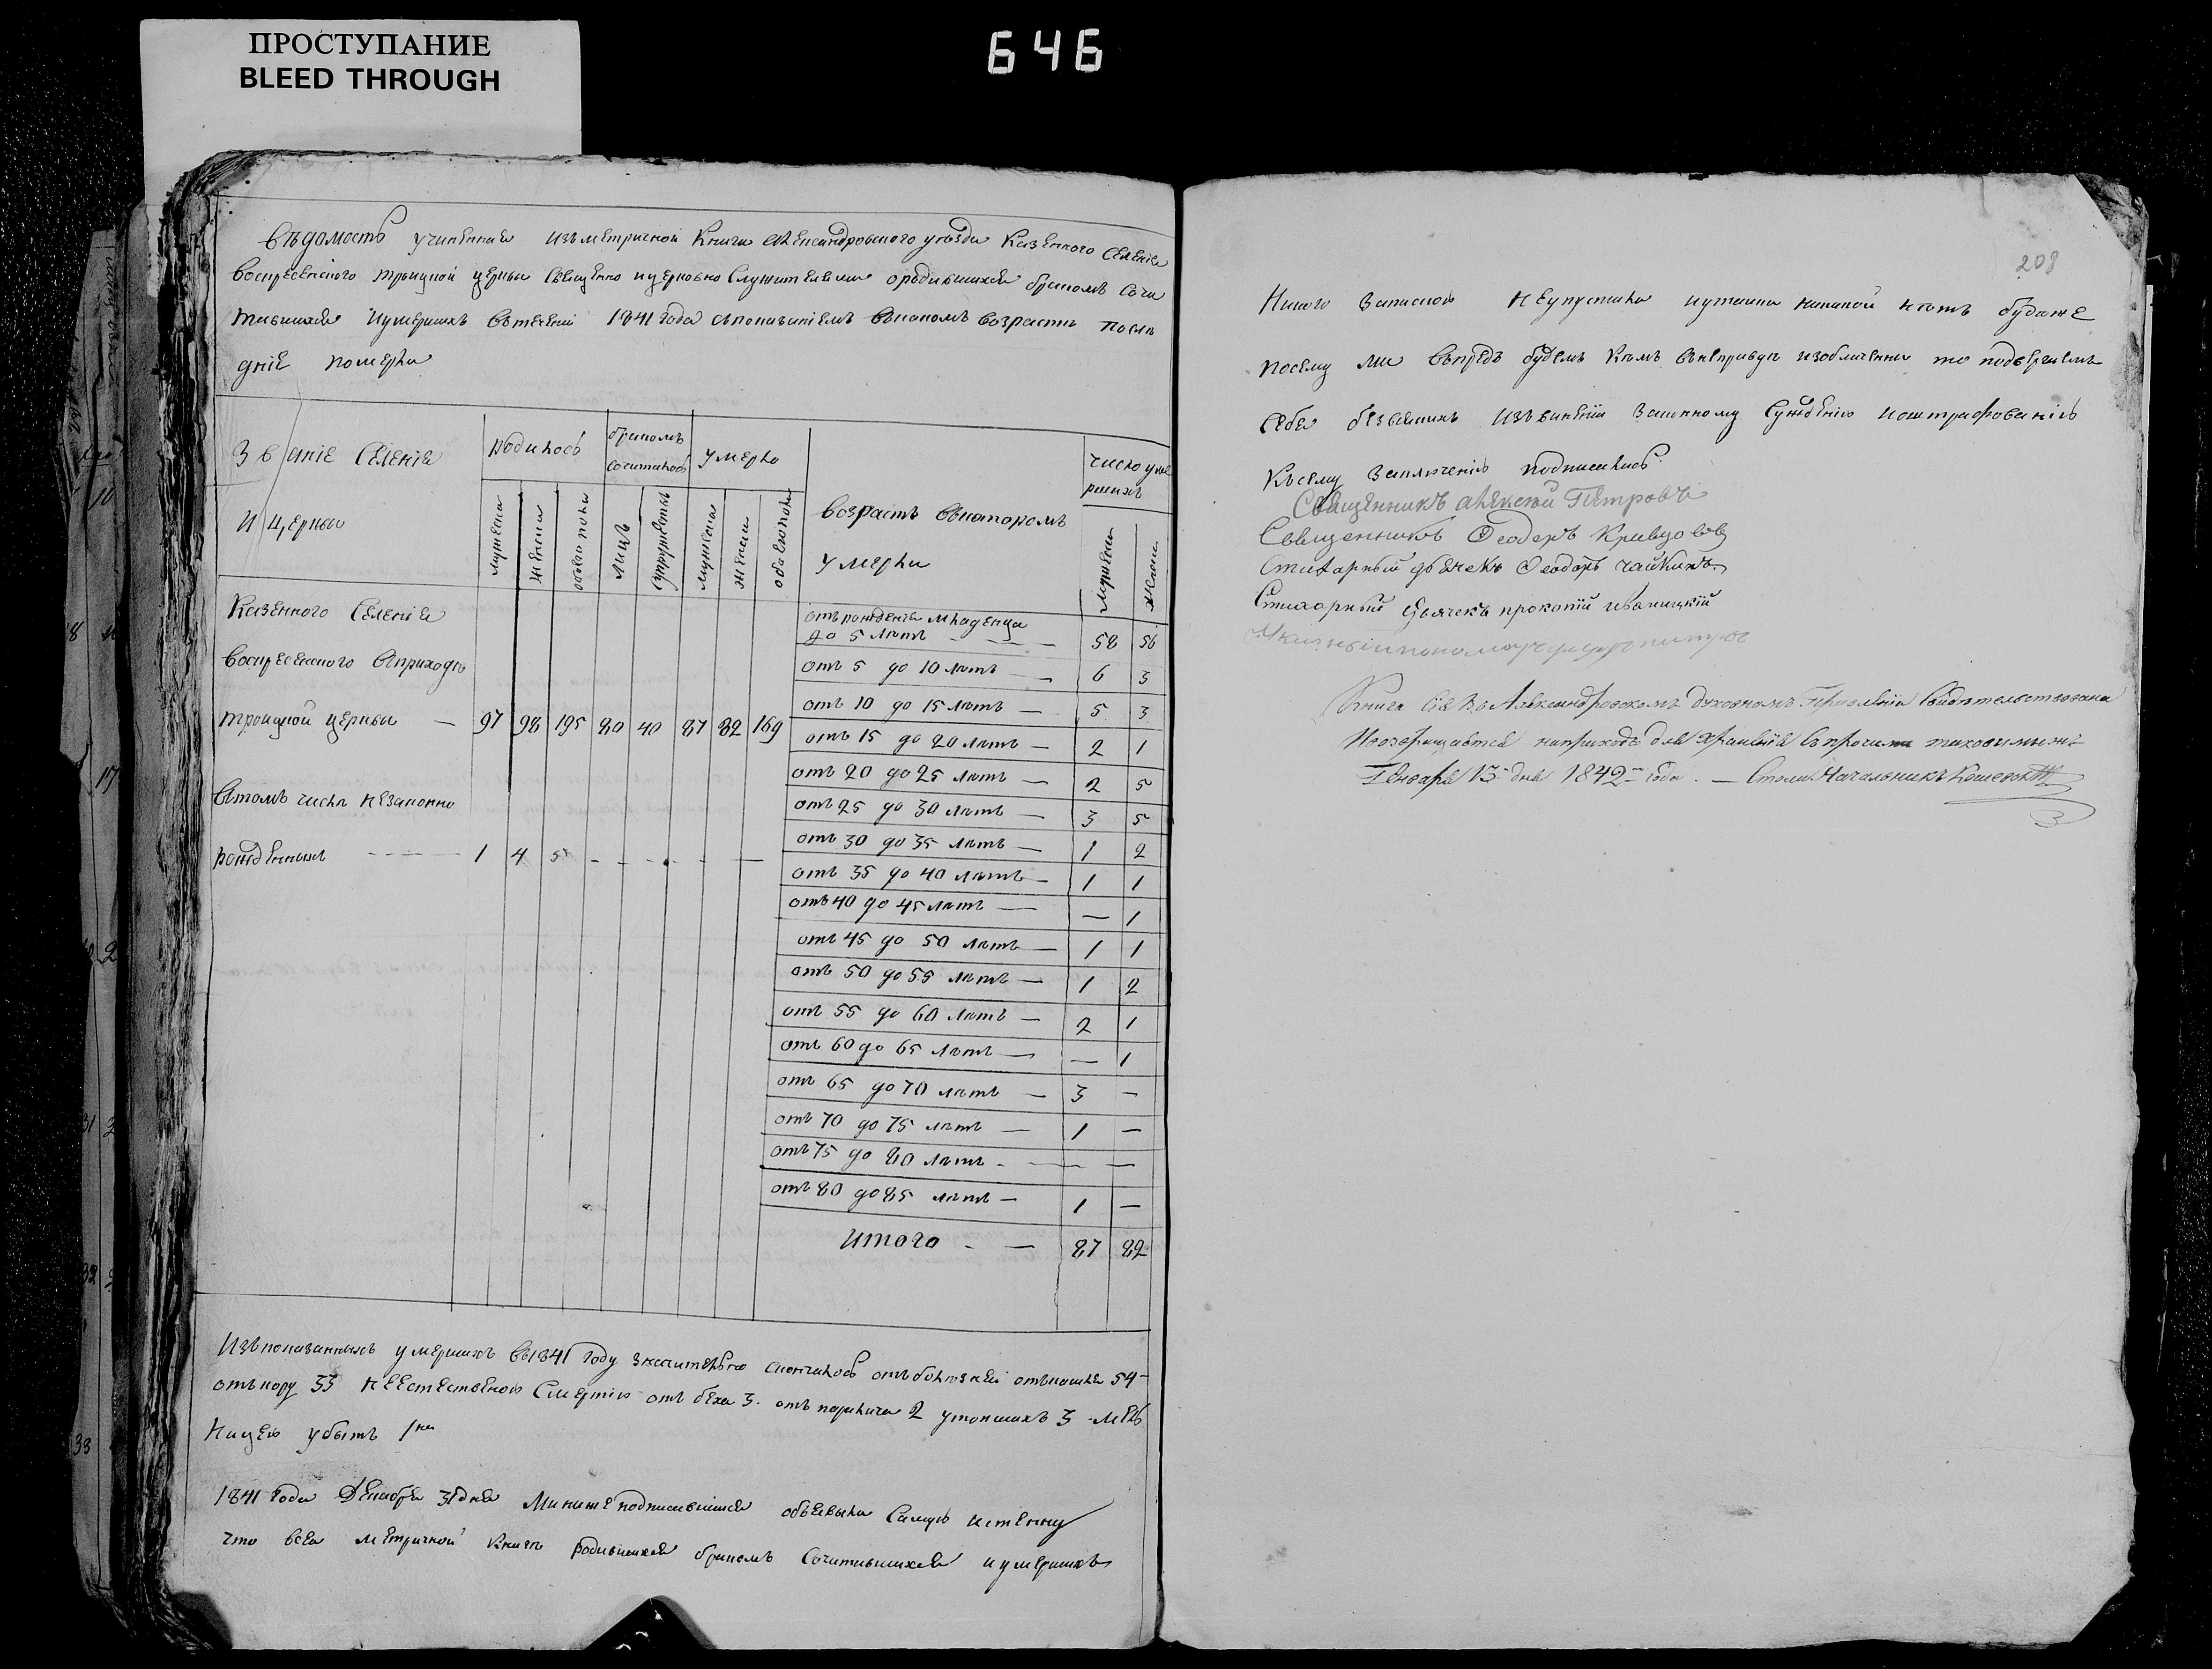 ПРОСТУПАНИЕ
BLEED THROUGH
646
Вѣдомость учиненная изъ метричной Книги Александровского уѣзда Казенного Селенія
Воскресенского троицкой церкви Священно и церковно Служителями о родившихся бракомъ Сочи
тавшихся и умершихъ въ теченіи 1841 года съ показаніемъ въ какомъ возрастѣ послѣ
дніе померли
Званіе Селенія
и церкви
Родилось
бракомъ сочиталось
Умерло
возрастъ въ каторомъ
умерли
число уме
ршихъ
мужеска
женска
обоего пола
лицъ
супружествъ
мужеска
женска
обоего пола
мужеска
женска
Казенного Селенія
Воскресенского въ приходѣ
троицкой церкви — 97 98 195 80 40 87 82 169
В томъ числѣ незаконно
рожденныхъ — 1 4 5 - - - - —
отъ рожденія младенца
до 5 лѣтъ — 58 56
отъ 5 до 10 лѣтъ — 6 3
отъ 10 до 15 лѣтъ — 5 3
отъ 15 до 20 лѣтъ — 2 1
отъ 20 до 25 лѣтъ — 2 5
отъ 25 до 30 лѣтъ — 3 5
отъ 30 до 35 лѣтъ — 1 2
отъ 35 до 40 лѣтъ — 1 1
отъ 40 до 45 лѣтъ — — 1
отъ 45 до 50 лѣтъ — 1 1
отъ 50 до 55 лѣтъ — 1 2
отъ 55 до 60 лѣтъ — 2 1
отъ 60 до 65 лѣтъ — — 1
отъ 65 до 70 лѣтъ — 3 —
отъ 70 до 75 лѣтъ — 1 —
отъ 75 до 80 лѣтъ - — —
отъ 80 до 85 лѣтъ — 1 —
итого - — 87 82
Изъ показанныхъ умершихъ въ 1841 году значительно скончалось отъ болѣзней отъ кашля 54
отъ кору 33 неестественою Смертію отъ беха 3. отъ паралича 2 утопшихъ 3 мель
ницею убитъ 1
1841 года Декабря 31 дня Мы ниже подписавшіися объявыли Самую истенну
что всея метричной книгѣ родившихся бракомъ Сочитавшихся и умершихъ
208
Никого Запискою неупустили и утаики никакой нѣтъ буде же
посему мы въпредъ будемъ Кѣмъ въ неправдѣ изобличенны то подвергаемъ
Себя безъ всякихъ изъвиненіи Законному Сужденію и оштрафованію
Къ сему Заключенію подписались
Священникъ алексей Петровъ
Священникъ Ѳеодоръ Кривцовъ
Стихарный дьячекъ Ѳеодоръ Чайкинъ
Стихорный Дьячекъ прокопій иваницкій
пономарь
Книга Сія въ Александровскомъ Духовномъ Правленіи Свидѣтельствована
и возвращается на приходъ для храненія въ прочими таковыми
Генваря 13 дня 1842 года. — Столо Начальникъ